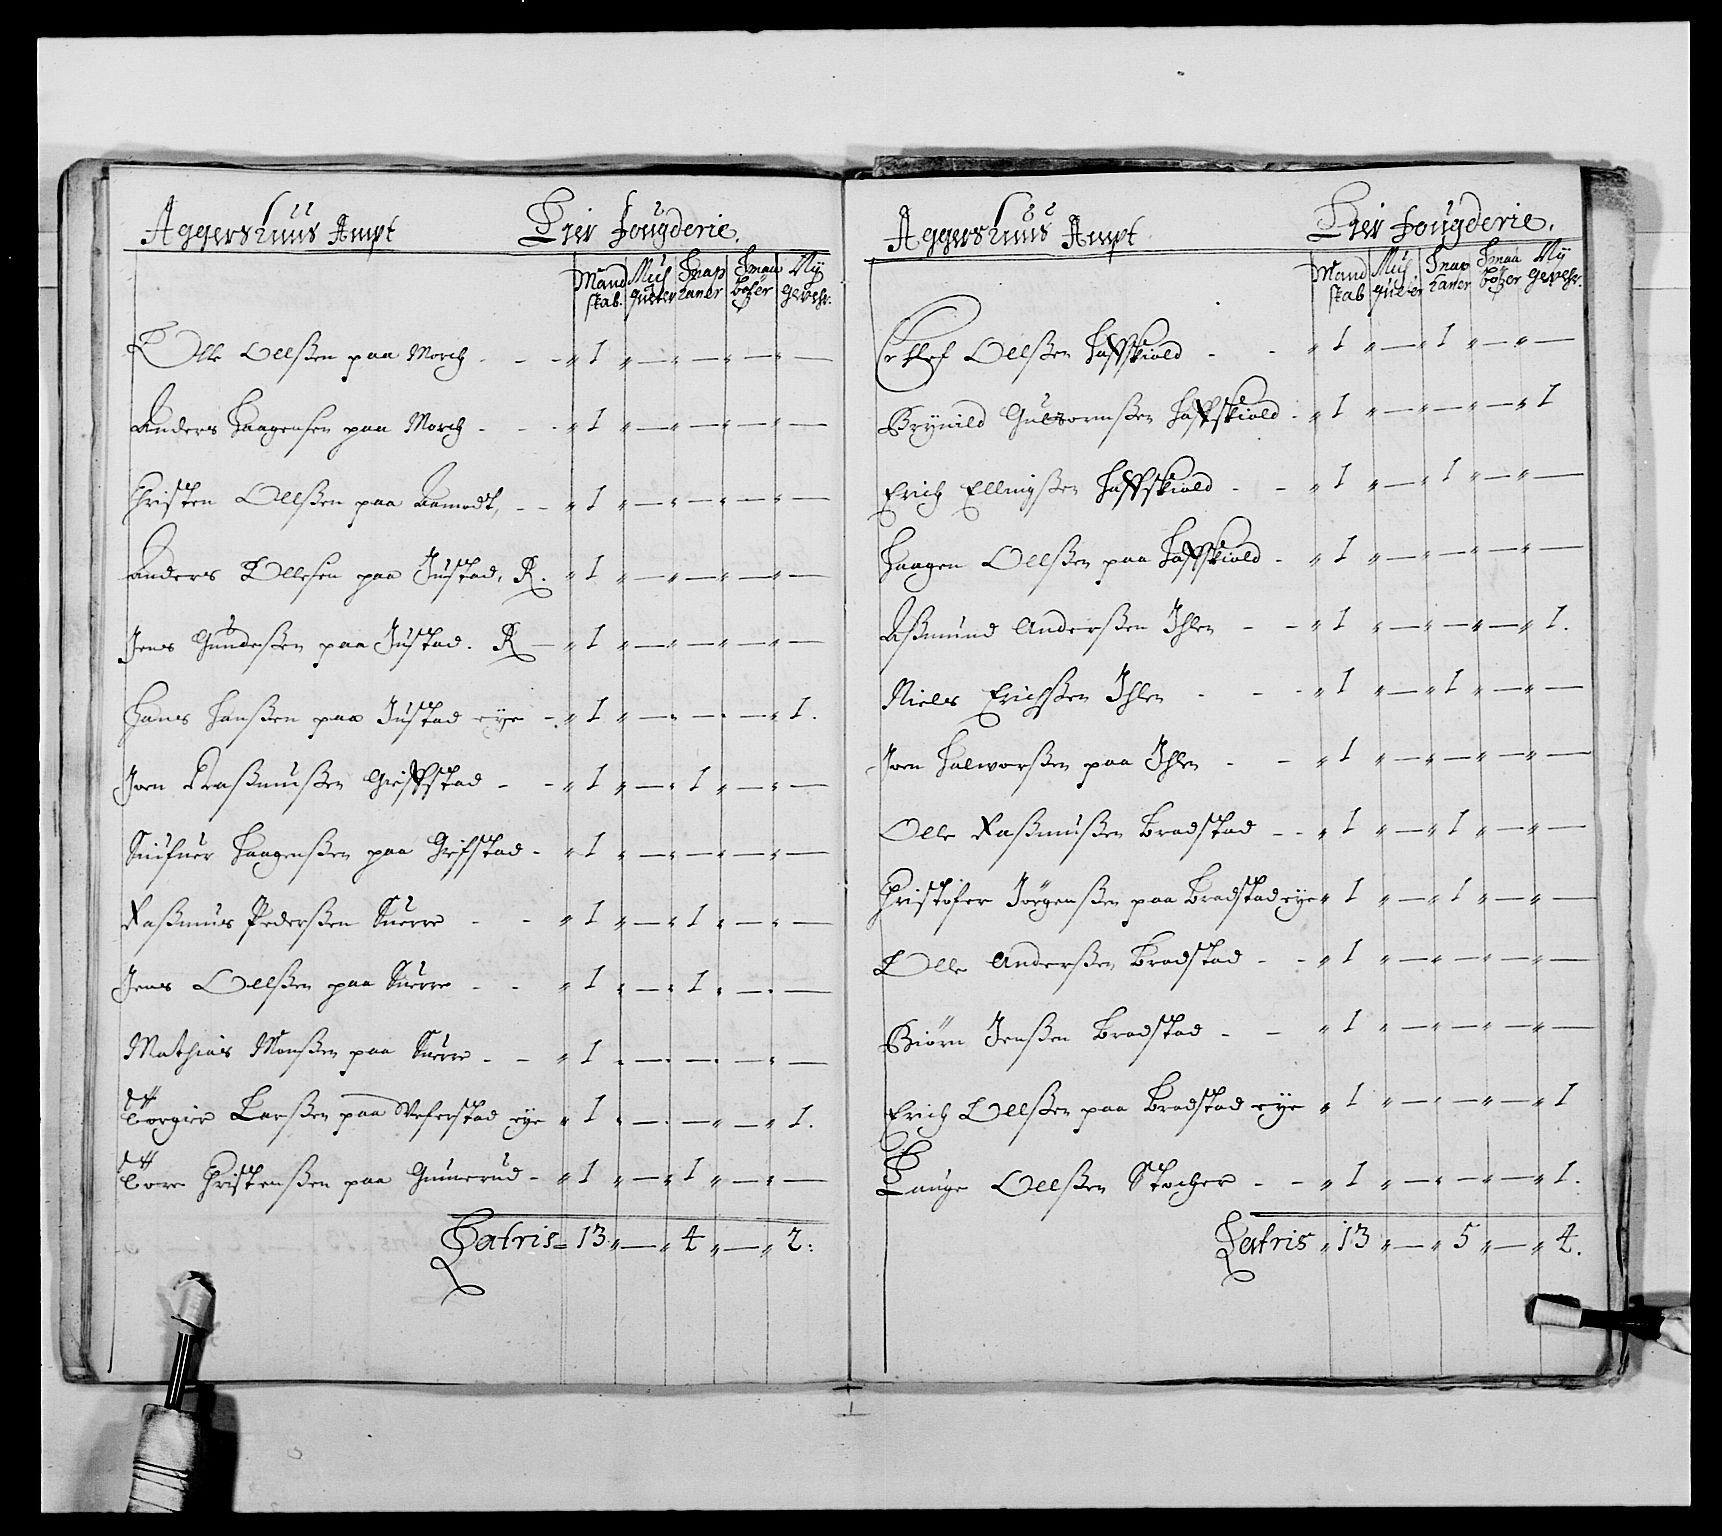 Aggershuus Ampt Eger Fougderie.
Mand skab. Mus queter Snap haner Smaa bøßer Ny gevehr.
Olle Ollßen paa Morch - - - „ 1 „ — „ — „ — „ —
Anders Haagensen paa Morch - - - „ 1 „ — „ — „ — „ —
Christen Ollßen paa Aamodt, - - „ 1 „ — „ — „ — „ —
Anders Ollesen paa Justad, R. „ 1 „ — „ — „ — „ —
Jens Gundersßen paa Justad. R — „ 1 „ — „ — „ — „ —
Hans Hanßen paa Justad eye - „ 1 „ — „ — „ — „ 1.
Joen Raßmußen Griffstad - - „ 1 „ — „ 1 „ — „ —
Haagenßen paa Grifstad - „ 1 „ — „ — „ — „ —
Raßmus Pederßen Snerre - - „ 1 „ — „ 1 „ — „ —
Jens Ollßen paa Snerre - - „ 1 „ — „ 1 „ — „ —
Mathias Monßen paa Snerre - - „ 1 „ — „ — „ — „ —
Torgier Larßen paa Veferstad eye „ 1 „ — „ — „ — „ 1.
Tore Christenßen paa Gunnerud - „ 1 „ — „ 1 „ — „ —
Latris - 13 „ — „ 4 „ — „ 2:
Aggershuus Ampt Eger Fougderie.
Mand skab Mus. queter Snap haner Smaa bøßer Ny gevehr.
Ollßen Hafskiold - - „ 1 „ — „ 1 „ — „ —
Brynild Gulbormßen Hafskiold - „ 1 „ — „ — „ — „ 1
Erich Ellingßen Hafskiold - - „ 1 „ — „ 1 „ — „ —
Haagen Ollßen paa Hafskiold - „ 1 „ — „ — „ — „ —
Aßmund Anderßen Ihlen - - „ 1 „ — „ — „ — „ 1.
Niels Erichßen Ihlen - - - „ 1 „ — „ 1 „ — „ —
Joen Halworßen paa Ihlen - - „ 1 „ — „ — „ — „ —
Olle Raßmußen Bradstad - - „ 1 „ — „ 1 „ — „ —
Christofer Jörgenßen paa Bradstad eye „ 1 „ — „ 1 „ — „ —
Olle Anderßen Bradstad - - „ 1 „ — „ — „ — „ —
Biörn Jenßen Bradstad - - „ 1 „ — „ — „ — „ —
Erich Ollßen paa Bradstad eye „ 1 „ — „ — „ — „ 1
Lauge Ollßen Stocher - - „ 1 „ — „ — „ — „ 1.
Latris „ 13 „ — „ 5 „ — „ 4.